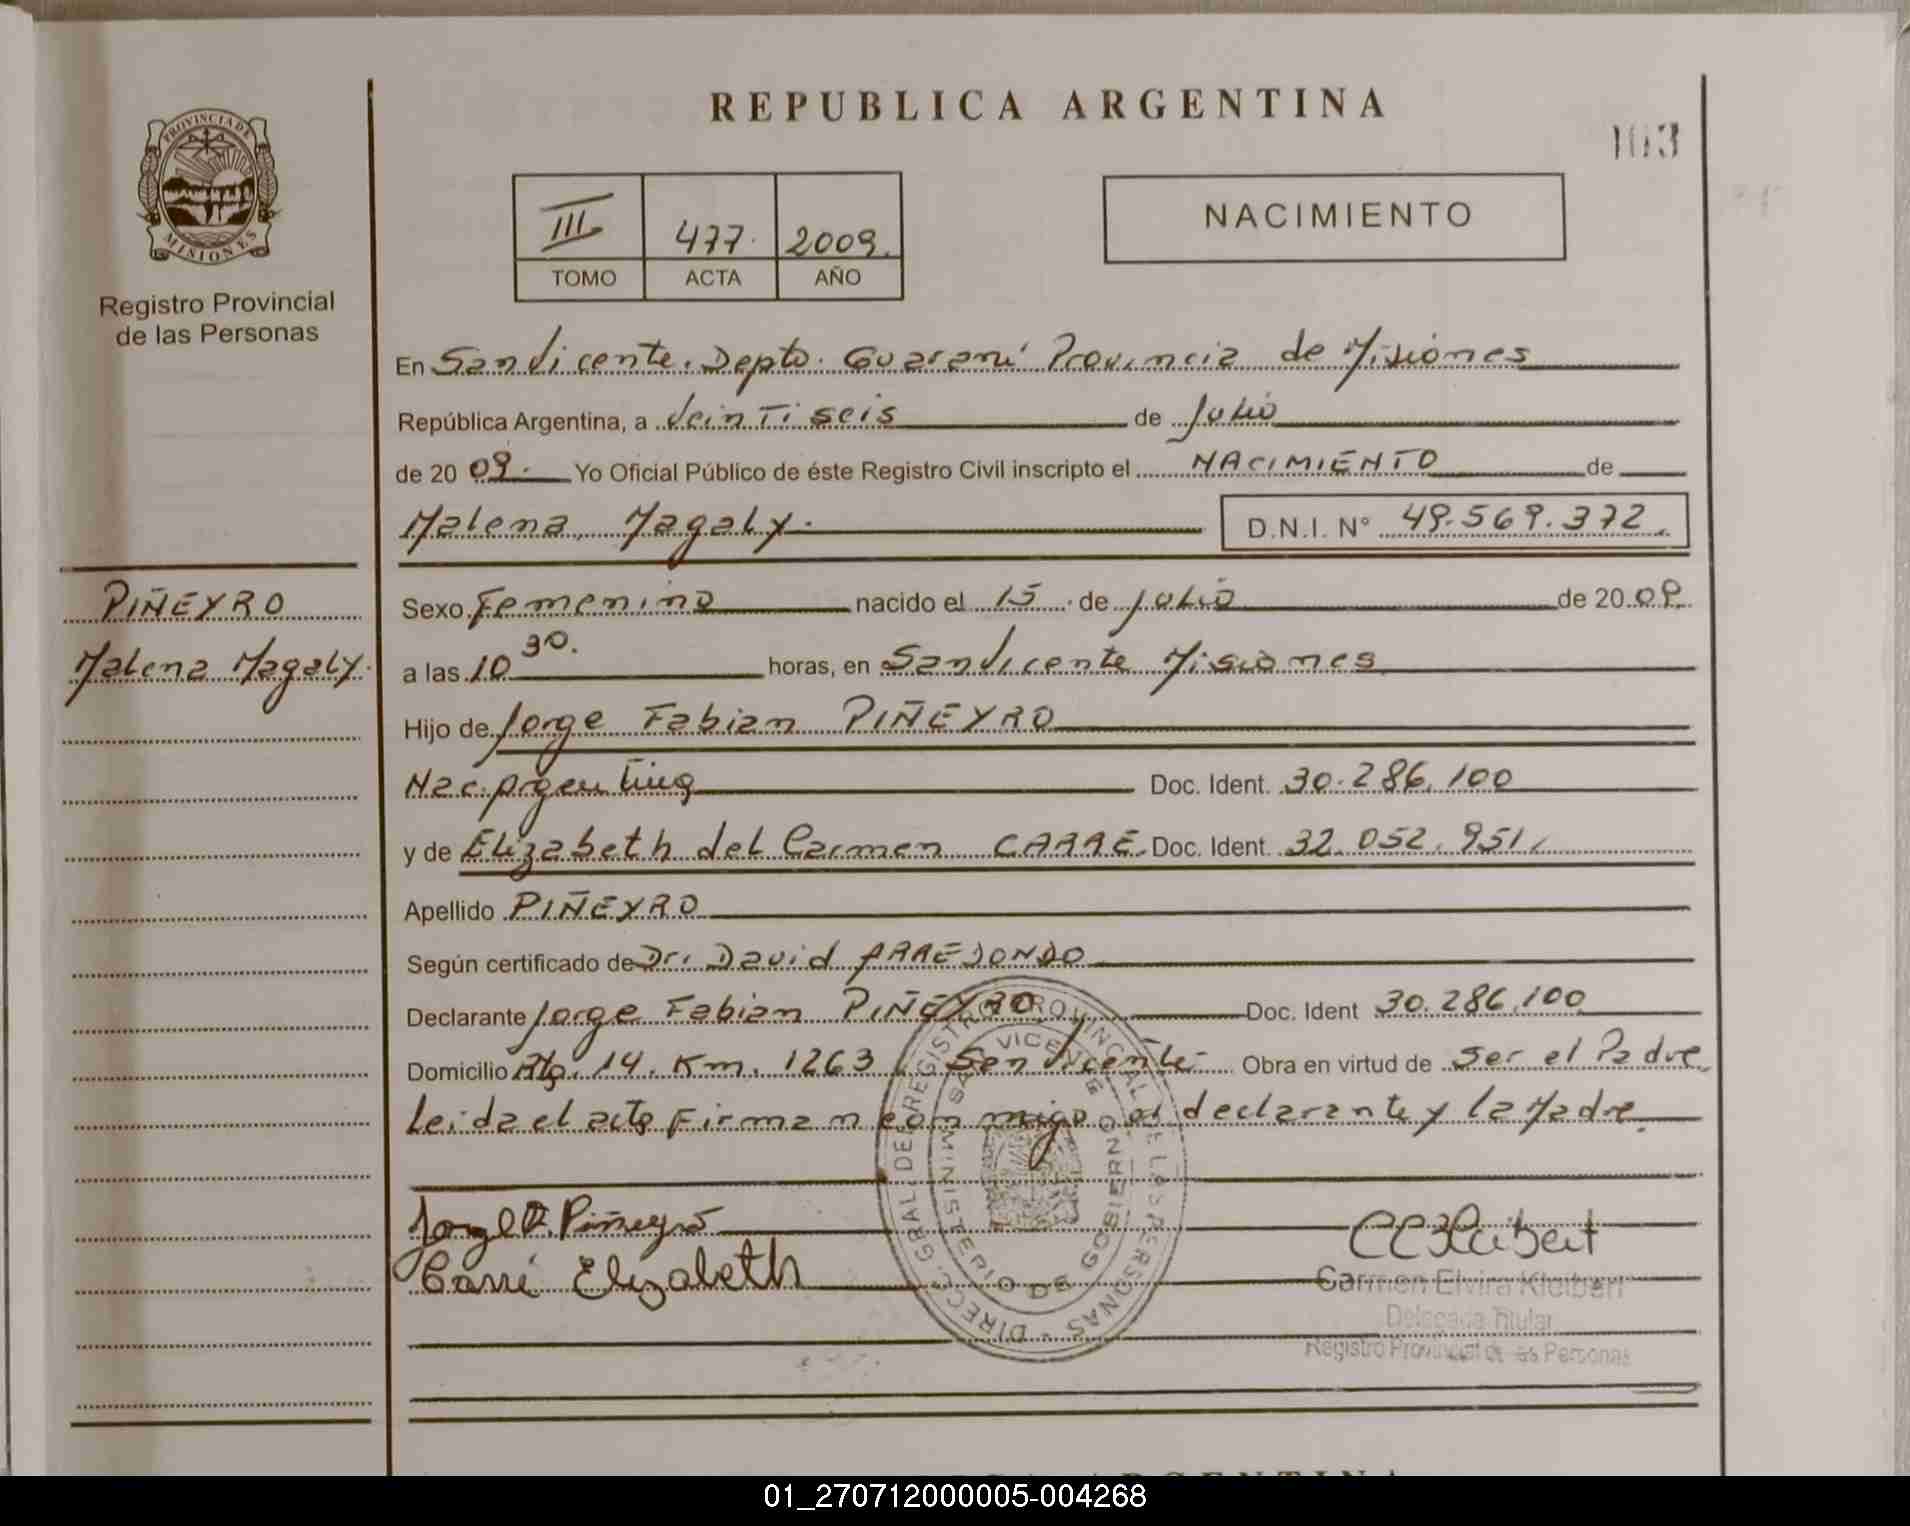 REPUBLICA ARGENTINA
103
PROVINCIA DE MISIONES
Registro Provincial
de las Personas
III 477. 2009.
TOMO ACTA AÑO
NACIMIENTO
En San Vicente. Depto. Guaraní Provincia de Misiones
República Argentina, a Veintiseis de Julio
de 2009. Yo Oficial Público de éste Registro Civil inscripto el NACIMIENTO de
Malena Magaly. D.N.I. N° 49.569.372.
PIÑEYRO
Malena Magaly.
Sexo Femenino nacido el 15 de Julio de 2009
a las 10 30. horas, en San Vicente Misiones
Hijo de Jorge Fabian PIÑEYRO
Nac. Argentina Doc. Ident. 30.286.100
y de Elizabeth del Carmen CARRE Doc. Ident. 32.052.951
Apellido PIÑEYRO
Según certificado de Dr. David ARREDONDO
Declarante Jorge Fabian PIÑEYRO Doc. Ident 30.286.100
Domicilio 14. Km. 1263 San Vicente Obra en virtud de ser el Padre
Leida el acta Firman conmigo el declarante y la Madre.
DIRECC. GRAL. DE REGISTRO PROVINCIAL DE LAS PERSONAS
SAN VICENTE
MINISTERIO DE GOBIERNO
Jorge F. Piñeyro
Carré Elizabeth
Carmen Elvira Kleibert
Delegada Titular
Registro Provincial de las Personas
01_270712000005-004268